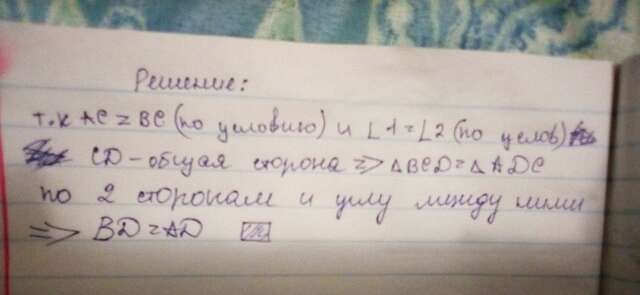 Решение:
т.к AC = BC (по условию) и ∠1 = ∠2 (по услов)
CD - общая сторона => △BCD = △ADC
по 2 сторонам и углу между ними
=> BD = AD